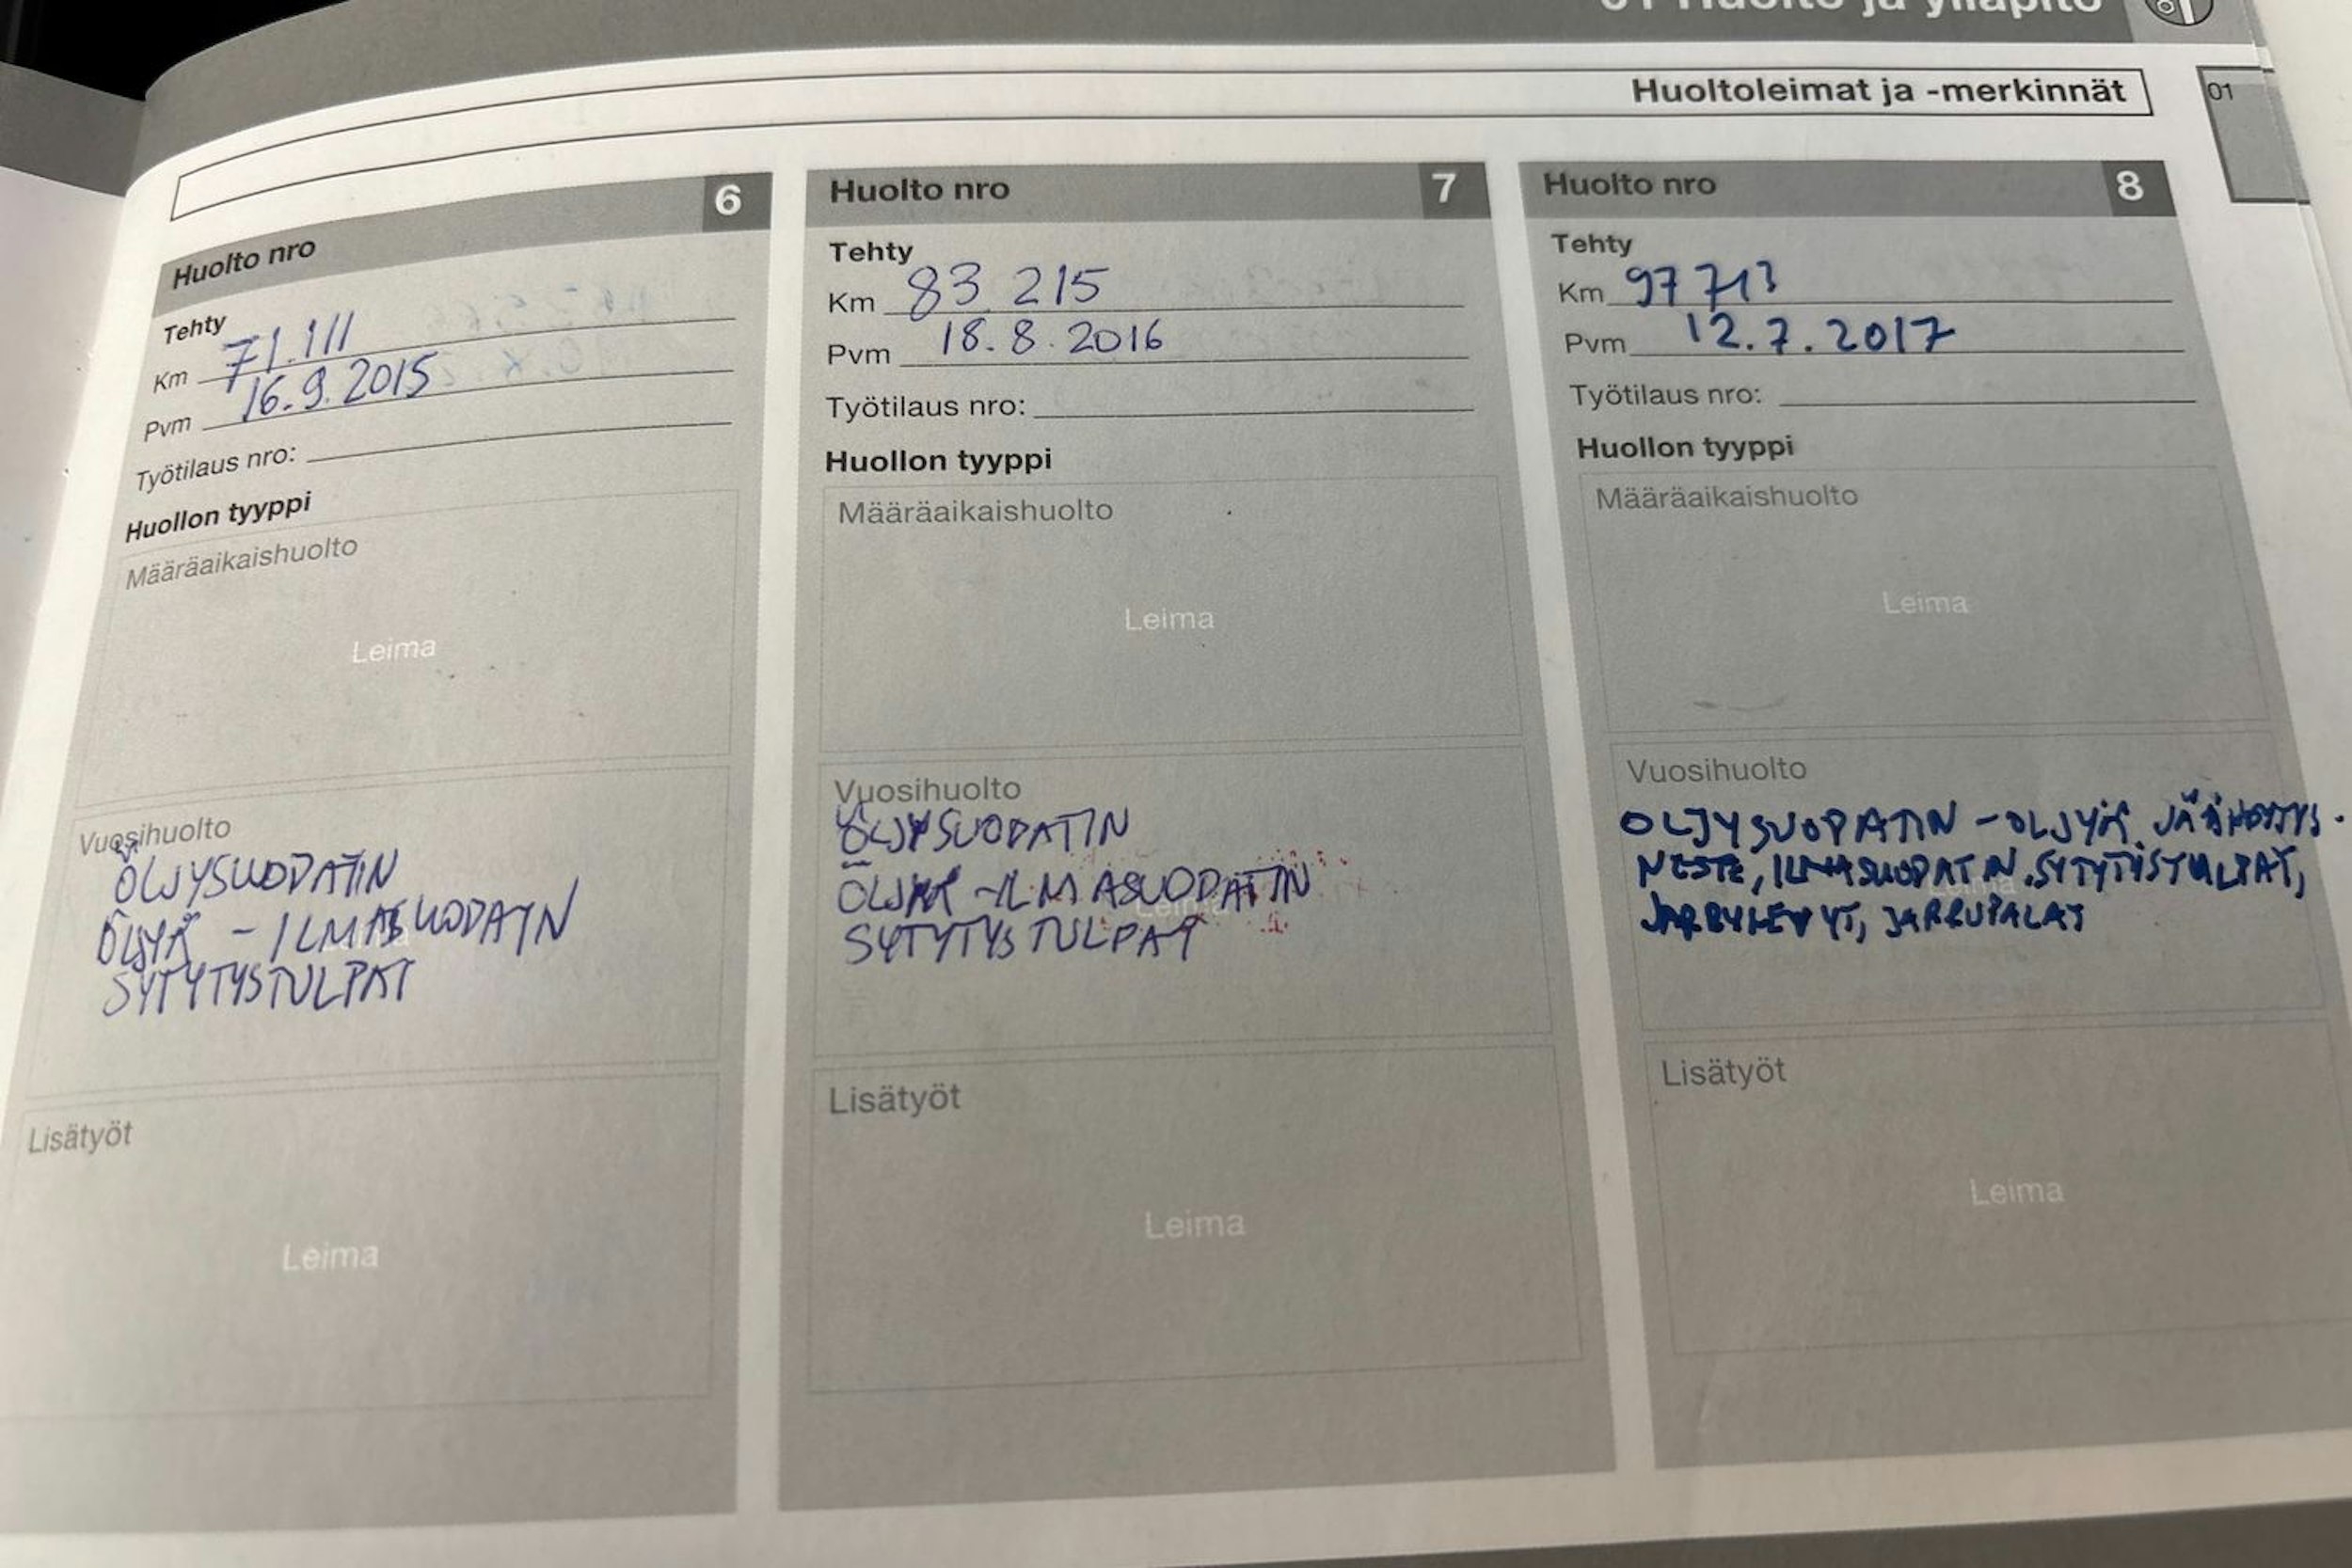 01 Huolto ja ylläpito
Huoltoleimat ja -merkinnät
01
Huolto nro 6
Tehty
Km 71.111
Pvm 16.9.2015
Työtilaus nro:
Huollon tyyppi
Määräaikaishuolto
Leima
Vuosihuolto
ÖLJYSUODATIN
ÖLJYÄ - ILMASUODATIN
SYTYTYSTULPAT
Lisätyöt
Leima
Huolto nro 7
Tehty
Km 83.215
Pvm 18.8.2016
Työtilaus nro:
Huollon tyyppi
Määräaikaishuolto
Leima
Vuosihuolto
ÖLJYSUODATIN
ÖLJYÄ - ILMASUODATIN
Leima
SYTYTYSTULPAT
Lisätyöt
Leima
Huolto nro 8
Tehty
Km 97 713
Pvm 12.7.2017
Työtilaus nro:
Huollon tyyppi
Määräaikaishuolto
Leima
Vuosihuolto
OLJYSUODATIN - OLJYÄ JÄÄHDYTYS.
NESTE, ILMASUODATIN. SYTYTYSTULPAT,
Leima
JARRULEVYT, JARRUPALAT
Lisätyöt
Leima